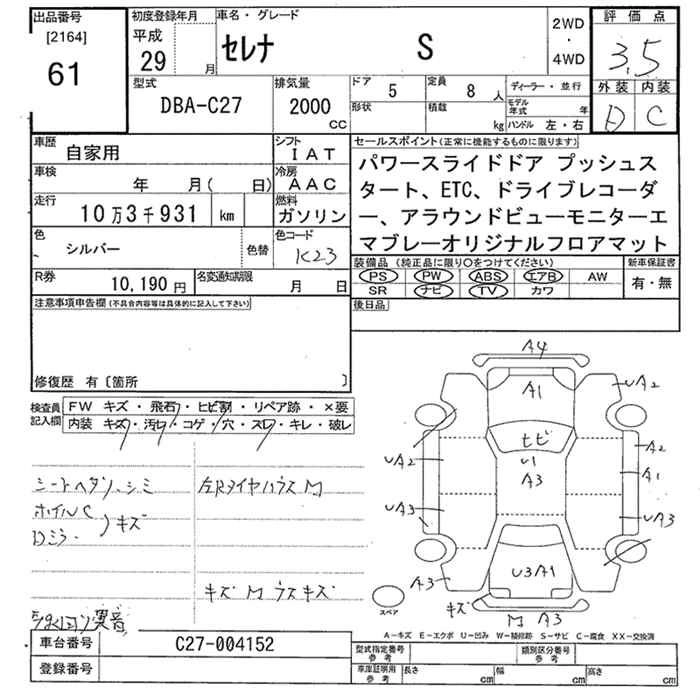 出品番号 初度登録年月 車名・グレード 評価点
[2164] 平成 セレナ S 2WD ・ 4WD 3.5
61 29 月 外装 内装
型式 排気量 ドア 5 定員 8 人 ディーラー・並行
DBA-C27 2000 CC 形状 積載 kg モデル年式 年 D C
ハンドル 左・右
車歴 自家用 シフト IAT セールスポイント(正常に機能するものに限ります)
車検 年 月( 日) 冷房 AAC パワースライドドア プッシュス
走行 10万3千931 km 燃料 ガソリン タート、ETC、ドライブレコーダ
色 シルバー 色替 色コード K23 ー、アラウンドビューモニターエ
マブレーオリジナルフロアマット
R券 10,190円 名変通知期限 月 日 装備品(純正品に限り○をつけてください) 新車保証書
PS PW ABS エアB AW 有・無
SR ナビ TV カワ
注意事項申告欄(不具合内容等は具体的に記入して下さい) 後日品
修復歴 有〔箇所 〕
検査員記入欄 FW キズ・飛石・ヒビ割・リペア跡・×要
内装 キズ・汚レ・コゲ・穴・スレ・キレ・破レ
シートヘタリ、シミ 左Rタイヤハウス M
ホイルC
Dミラー キズ
キズ M ウスキズ
A4
A1 UA2
ヒビ
U1
A3
UA2 A2
A1
UA3 UA3
A3 U3A1
キズ M A3
スペア
A-キズ E-エクボ U-凹み W-補修跡 S-サビ C-腐食 XX-交換済
車台番号 C27-004152 型式指定番号 参考 類別区分番号 参考
登録番号 車庫証明用 参考 長さ cm 幅 cm 高さ cm